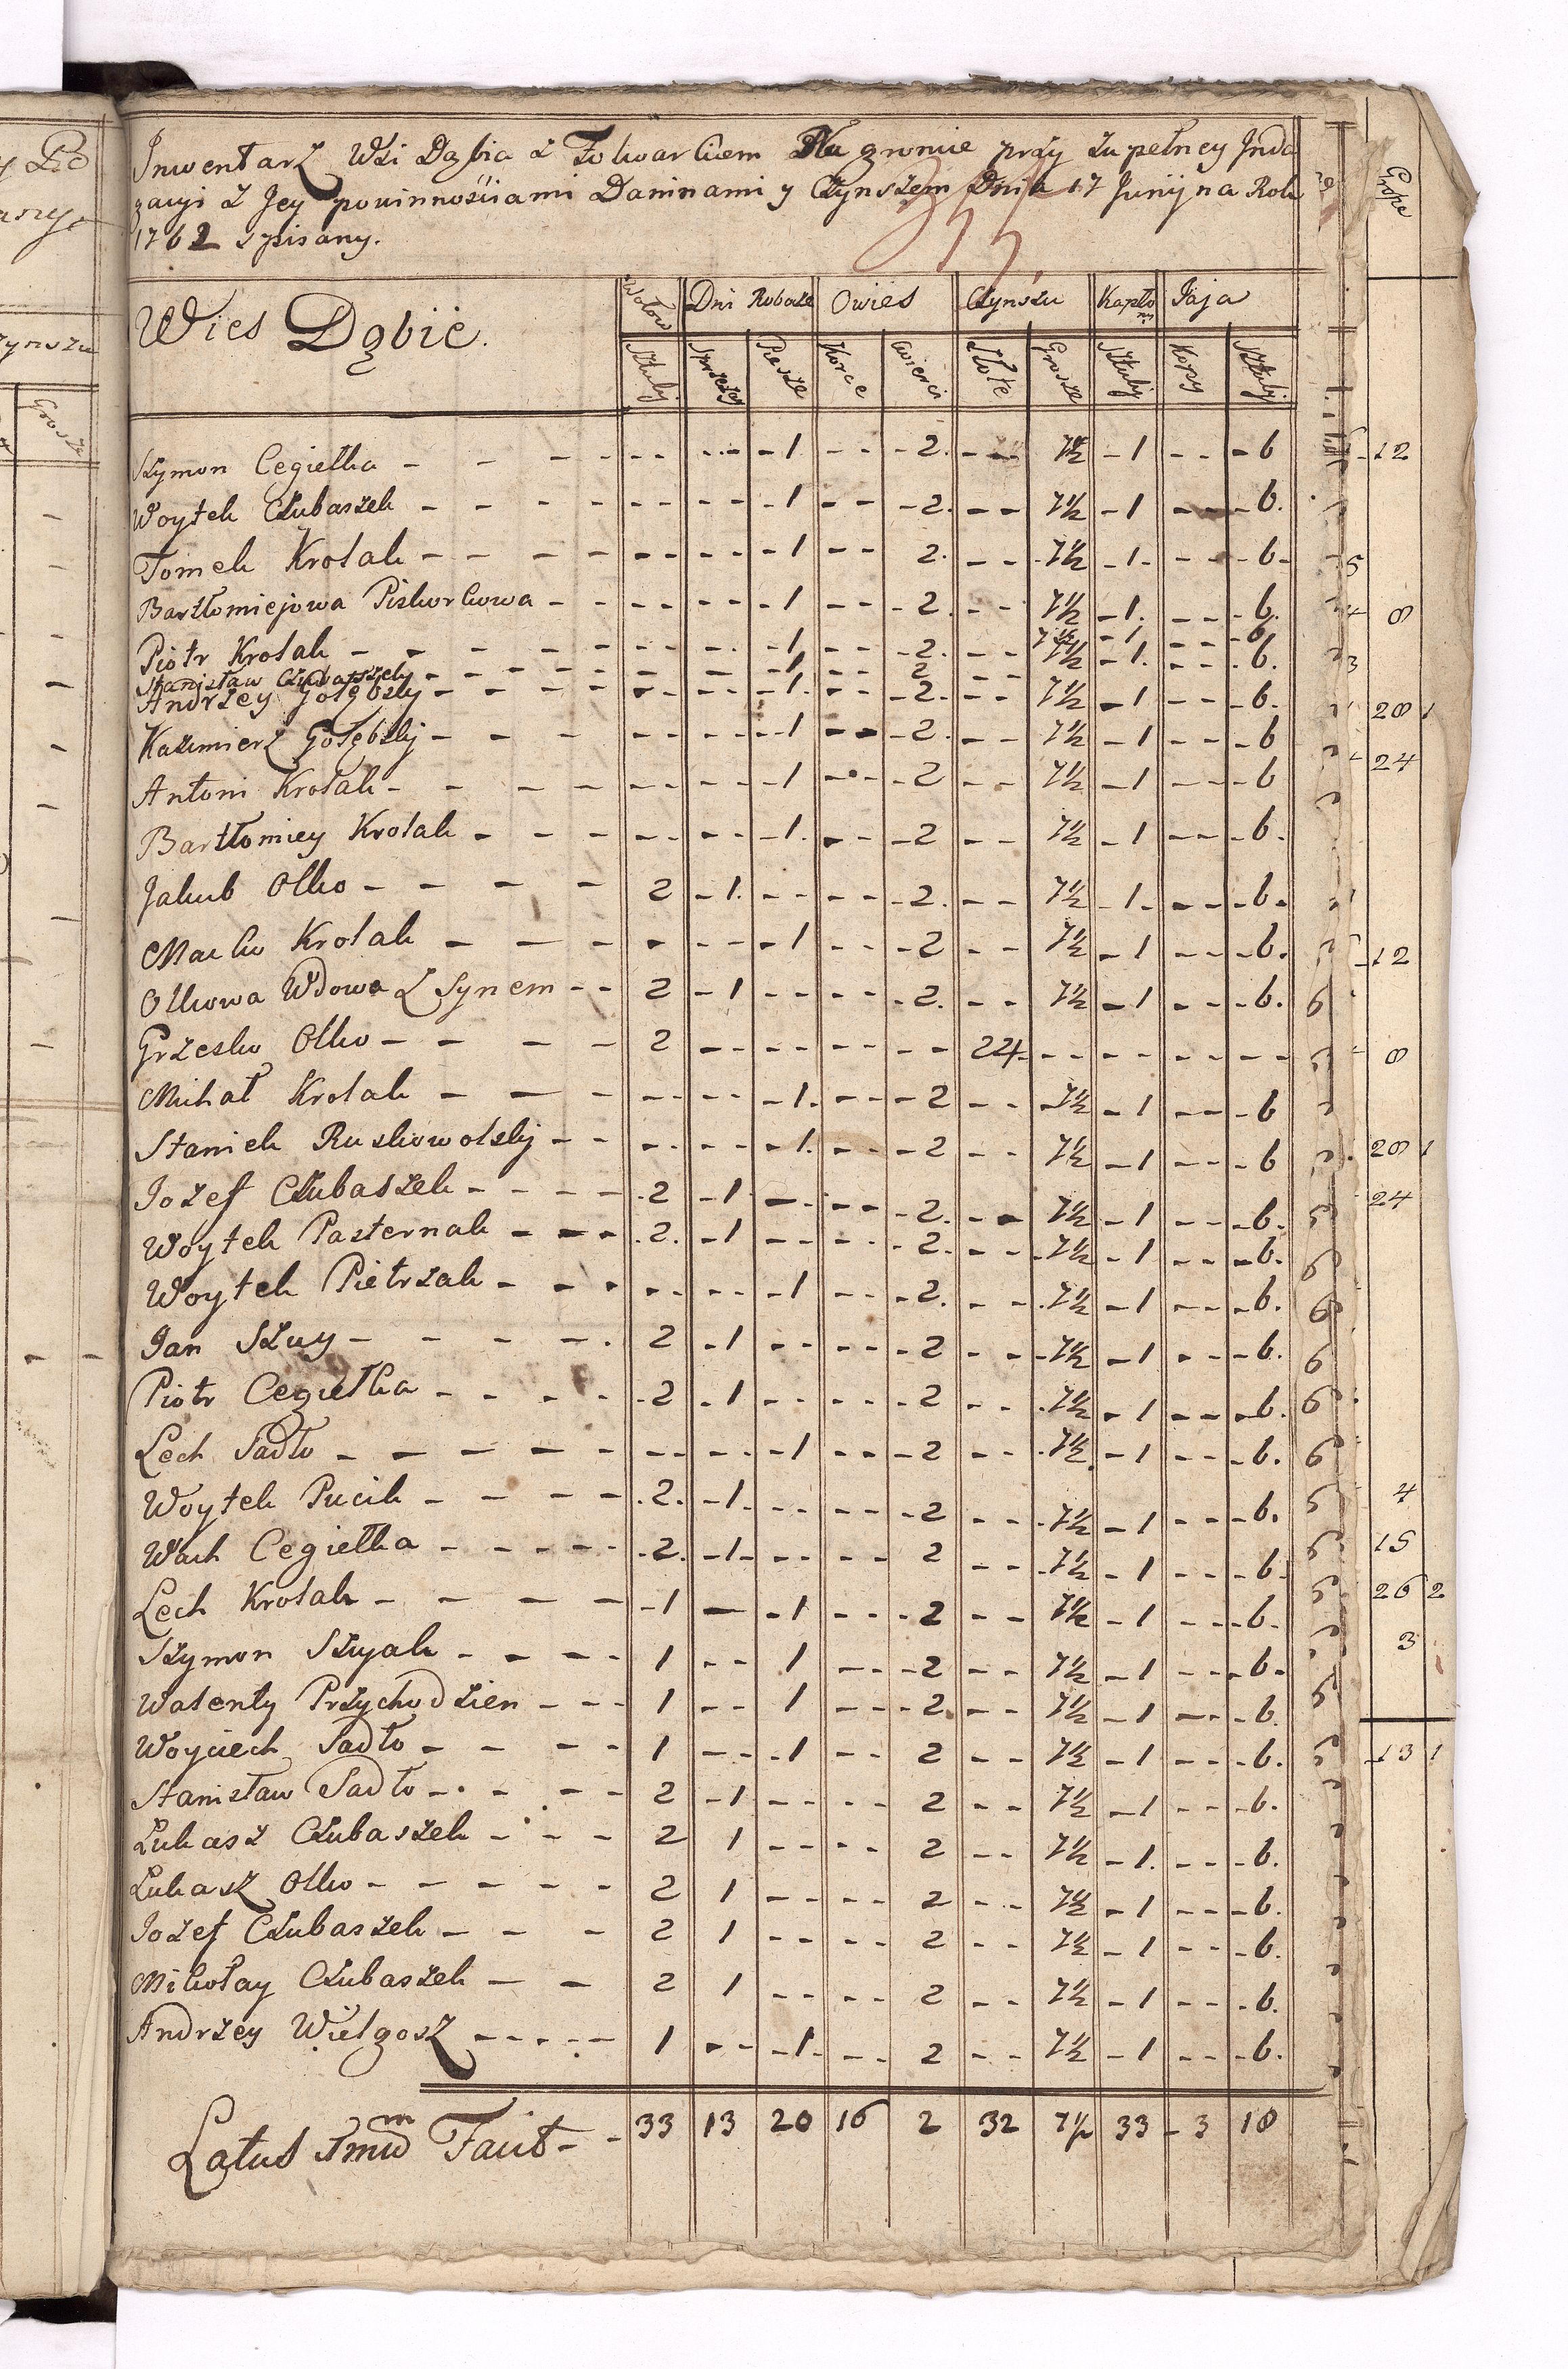 Inwentarz Wsi Dąbia z Folwarkiem Na gronie przy zupełney Inda
gacyi z Jey powinnościami Daninami y Czynszem Dnia 17 Junij na Rok
1762 spisany.
Wies Dąbie.
Wołow Dni Robocze Owies Czynszu Kapłony Jaja
Sztuki Sprzężay Piesze Korce Cwierci Złote Grosze Sztuki Kopy Sztuki
Szymon Cegiełka - - - - - - - 1 - - - 2. - - 7½ - 1 - - - 6
Woytek Czubaszek - - - - - - - 1 - - - 2. - - 7½ - 1 - - - 6.
Tomek Krolak - - - - - - - 1 - - 2. - - 7½ - 1. - - - 6.
Bartłomiejowa Piskorkowa - - - - - - 1 - - - 2. - - 7½ - 1. - - - 6.
Piotr Krolak - - - - - - - 1 - - - 2. - - 7½ - 1 - - - 6.
Stanisław Czubaszek - - - - - - - 1 - - - 2 - - 7½ - 1. - - - 6.
Andrzey Gołębski - - - - - - - 1. - - - 2. - - 7½ - 1 - - - 6.
Kazimierz Gołębski - - - - - - - 1 - - - 2. - - 7½ - 1 - - - 6
Antoni Krolak - - - - - - - 1 - - - 2 - - 7½ - 1 - - - 6
Bartłomiey Krolak - - - - - - - 1. - - - 2 - - 7½ - 1 - - - 6.
Jakub Olko - - - - 2 - 1. - - - - - 2. - - 7½ - 1. - - - 6.
Macko Krolak - - - - - - - 1 - - - 2 - - 7½ - 1 - - - 6.
Olkowa Wdowa z Synem - - 2 - 1 - - - - - 2. - - 7½ - 1 - - - 6.
Grzesko Olko - - - - 2 - - - - - - - - 24. - - - - - - - -
Michał Krolak - - - - - - - 1. - - - 2 - - 7½ - 1 - - - 6
Staniek Ruskowolski - - - - - - 1. - - - 2 - - 7½ - 1 - - - 6
Jozef Czubaszek - - - - 2 - 1 - - - - 2. - - 7½ - 1 - - - 6.
Woytek Pasternak - - - - 2. - 1 - - - - - 2. - - 7½ - 1 - - - 6.
Woytek Pietrzak - - - - - - - 1 - - - 2. - - 7½ - 1 - - - 6.
Jan Szuy - - - - 2 - 1 - - - - - 2 - - 7½ - 1 - - - 6.
Piotr Cegiełka - - - - 2 - 1 - - - - - 2 - - 7½ - 1 - - - 6.
Lech Sadło - - - - - - - - 1 - - - 2 - - 7½ - 1 - - - 6.
Woytek Pucik - - - - 2. - 1. - - - - - 2 - - 7½ - 1 - - - 6.
Wach Cegiełka - - - - - 2. - 1 - - - - - 2 - - 7½ - 1 - - - 6.
Lech Krolak - - - - 1 - - 1 - - - 2 - - 7½ - 1 - - - 6.
Szymon Szyak - - - - 1 - - 1 - - - 2 - - 7½ - 1 - - - 6.
Walenty Przychodzien - - - 1 - - 1 - - - 2 - - 7½ - 1 - - - 6.
Woyciech Sadło - - - - 1 - - - 1 - - 2 - - 7½ - 1 - - - 6.
Stanisław Sadło - - - - 2 - 1 - - - - 2 - - 7½ - 1 - - - 6.
Łukasz Czubaszek - - - 2 1 - - - - 2 - - 7½ - 1. - - - 6.
Łukasz Olko - - - - - 2 1 - - - - 2 - - 7½ - 1 - - - 6.
Jozef Czubaszek - - - 2 1 - - - - 2 - - 7½ - 1 - - - 6.
Mikołay Czubaszek - - 2 1 - - - - 2 - - 7½ - 1 - - - 6.
Andrzey Wielgosz - - - - - 1 - - - 1. - - 2 - - 7½ - 1 - - - 6.
Latus Facit - - 33 13 20 16 2 32 7½ 33 - 3 18
12
8
28 1
24
12
8
28 1
24
4
15
26 2
3
13 1